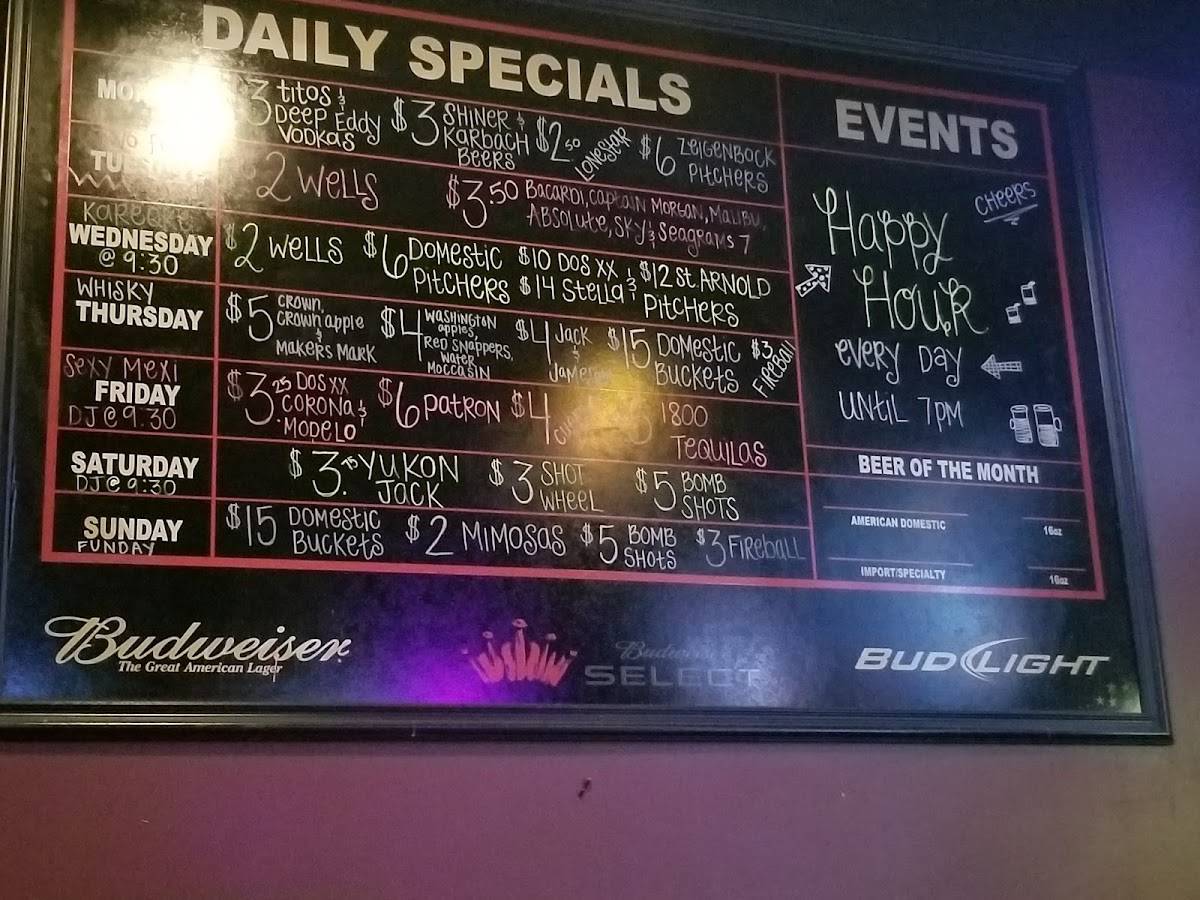 DAILY SPECIALS
$3 titos & Deep Eddy Vodkas
$3 SHINER & Karbach BEERS
$2.50 LONESTAR
$6 ZEIGENBOCK PITCHERS
$2 WELLS
$3.50 BACARDI, CAPTAIN MORGAN, MALIBU,
ABSOLUTE, SKY & Seagrams 7
KAREOKE
WEDNESDAY
@ 9:30
$2 WELLS
$6 DOMESTIC PITCHERS
$10 DOS XX &
$14 Stella &
$12 St. ARNOLD PITCHERS
WHISKY
THURSDAY
$5 CROWN, CROWN apple & MAKERS MARK
$4 WASHINGTON apples, RED SNAPPERS, WATER MOCCASIN
$4 JACK & Jameson
$15 DOMESTIC BUCKETS
$3 FIREBALL
SEXY MEXI
FRIDAY
DJ @ 9:30
$3.25 DOS XX CORONA & MODELO
$6 PATRON
$4
1800 TEQUILAS
SATURDAY
DJ @ 9:30
$3.75 YUKON JACK
$3 SHOT WHEEL
$5 BOMB SHOTS
SUNDAY
FUNDAY
$15 DOMESTIC BUCKETS
$2 MIMOSAS
$5 BOMB SHOTS
$3 FIREBALL
EVENTS
CHEERS
Happy
Hour
every Day
UNTIL 7PM
BEER OF THE MONTH
AMERICAN DOMESTIC 16oz
IMPORT/SPECIALTY 16oz
Budweiser
The Great American Lager
Budweiser
SELECT
BUD LIGHT